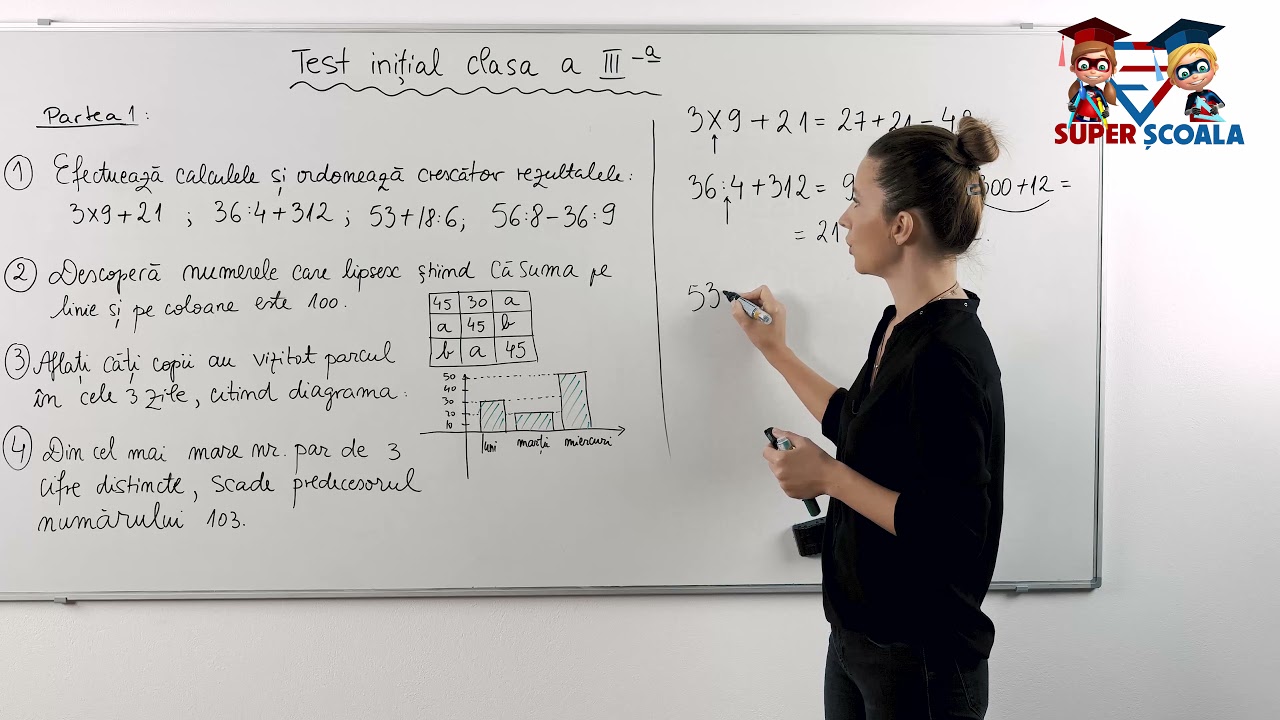 Test inițial clasa a III-a
Partea 1:
1 Efectuează calculele și ordonează crescător rezultatele:
3x9+21 ; 36:4+312 ; 53+18:6; 56:8-36:9
2 Descoperă numerele care lipsesc știind că suma pe
linie și pe coloane este 100.
45 30 a
a 45 b
b a 45
3 Aflați câți copii au vizitat parcul
în cele 3 zile, citind diagrama.
50
40
30
20
10
luni marți miercuri
4 Din cel mai mare nr. par de 3
cifre distincte, scade predecesorul
numărului 103.
3x9+21=27+21=48
36:4+312= 9 300+12=
= 21
53
SUPER ȘCOALA